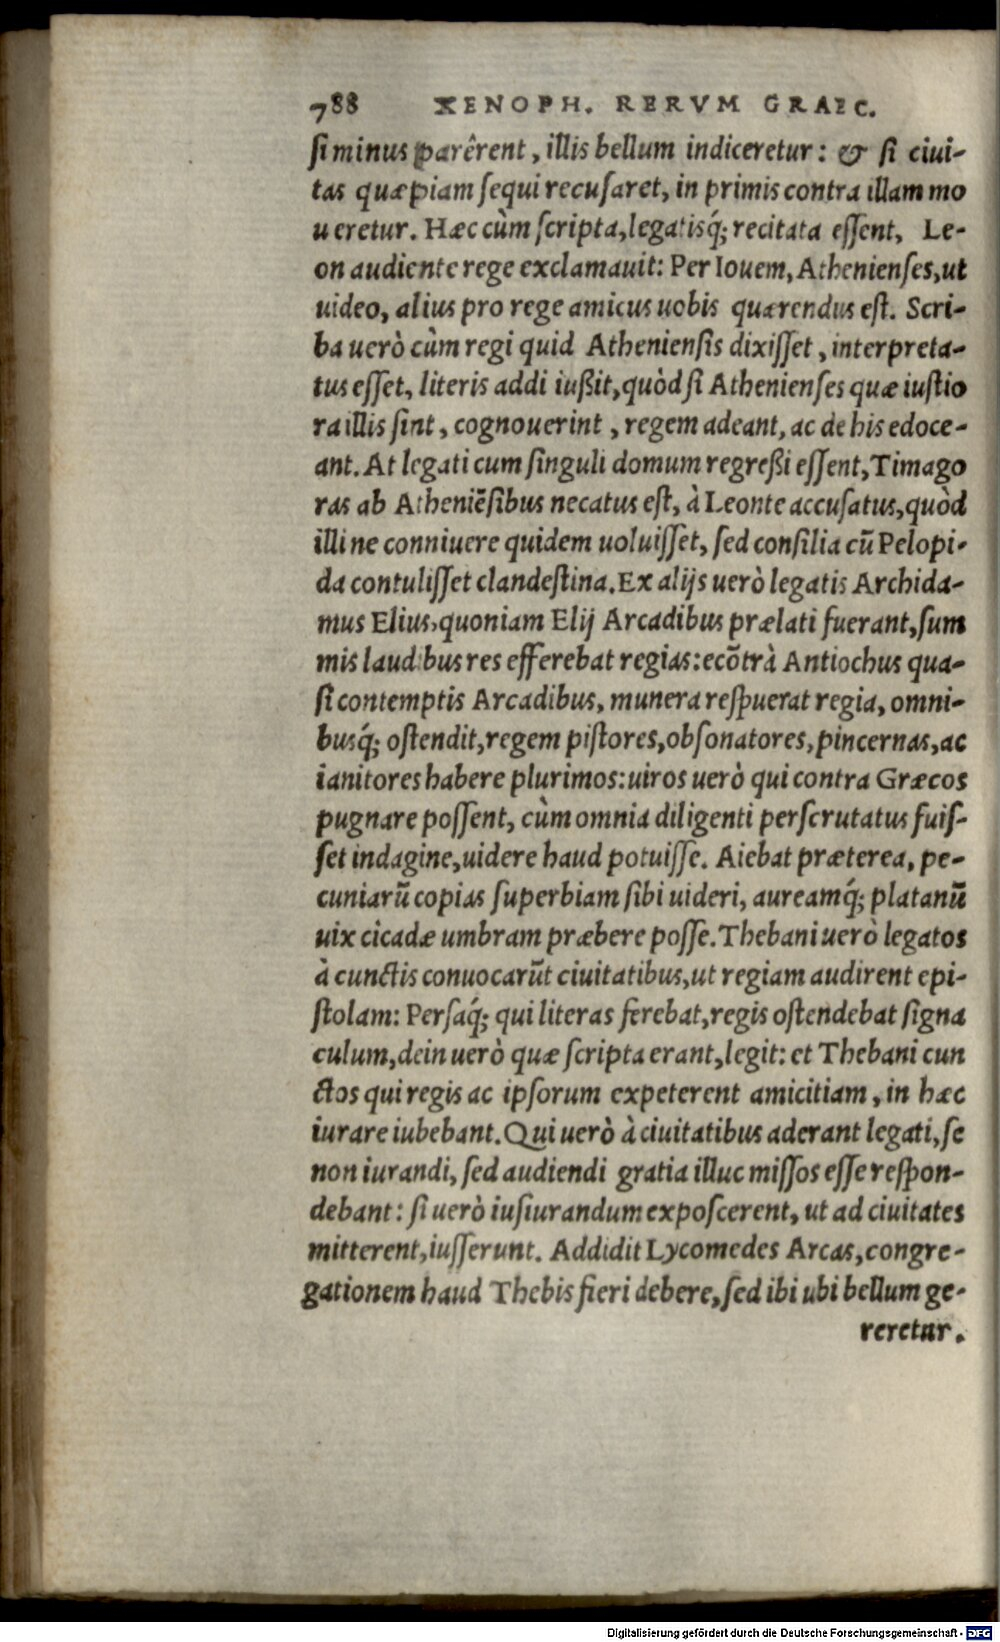 788 XENOPH. RERVM GRAEC.
si minus parêrent, illis bellum indiceretur: & si ciui-
tas quæpiam sequi recusaret, in primis contra illam mo
ueretur. Hæc cùm scripta, legatisq́; recitata essent, Le-
on audiente rege exclamauit: Per Iouem, Athenienses, ut
uideo, alius pro rege amicus uobis quærendus est. Scri-
ba uerò cùm regi quid Atheniensis dixisset, interpreta-
tus esset, literis addi iußit, quòd si Athenienses quæ iustio
ra illis sint, cognouerint, regem adeant, ac de his edoce-
ant. At legati cum singuli domum regreßi essent, Timago
ras ab Atheniēsibus necatus est, à Leonte accusatus, quòd
illi ne conniuere quidem uoluisset, sed consilia cū Pelopi-
da contulisset clandestina. Ex alijs uerò legatis Archida-
mus Elius, quoniam Elij Arcadibus prælati fuerant, sum
mis laudibus res efferebat regias: ecõtrà Antiochus qua-
si contemptis Arcadibus, munera respuerat regia, omni-
busq́; ostendit, regem pistores, obsonatores, pincernas, ac
ianitores habere plurimos: uiros uerò qui contra Græcos
pugnare possent, cùm omnia diligenti perscrutatus fuis-
set indagine, uidere haud potuisse. Aiebat præterea, pe-
cuniarū copias superbiam sibi uideri, aureamq́; platanū
uix cicadæ umbram præbere posse. Thebani uerò legatos
à cunctis conuocarūt ciuitatibus, ut regiam audirent epi-
stolam: Persaq́; qui literas ferebat, regis ostendebat signa
culum, dein uerò quæ scripta erant, legit: et Thebani cun
ctos qui regis ac ipsorum expeterent amicitiam, in hæc
iurare iubebant. Qui uerò à ciuitatibus aderant legati, se
non iurandi, sed audiendi gratia illuc missos esse respon-
debant: si uerò iusiurandum exposcerent, ut ad ciuitates
mitterent, iusserunt. Addidit Lycomedes Arcas, congre-
gationem haud Thebis fieri debere, sed ibi ubi bellum ge-
reretur.
Digitalisierung gefördert durch die Deutsche Forschungsgemeinschaft - DFG